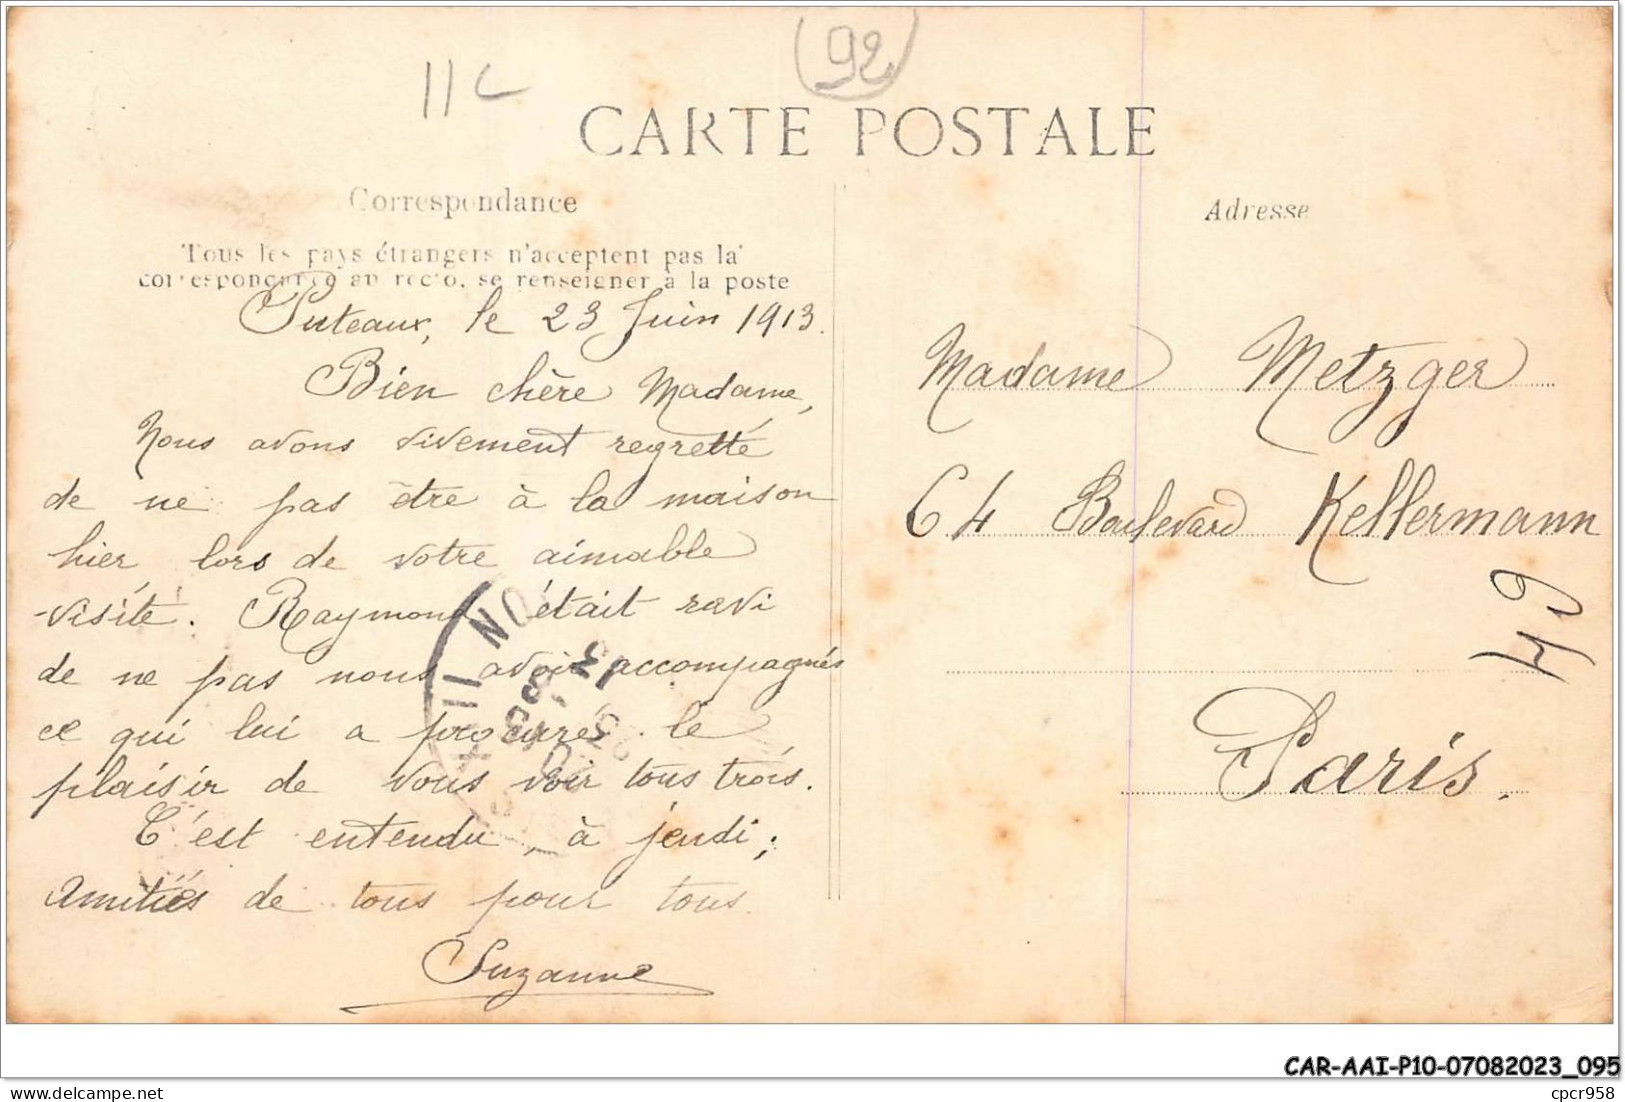 11C
92
CARTE POSTALE
Correspondance
Tous les pays étrangers n'acceptent pas la
correspondance au recto, se renseigner à la poste
Puteaux, le 23 Juin 1913.
Bien chère Madame,
Nous avons vivement regretté
de ne pas être à la maison
hier lors de votre aimable
visite. Raymond était ravi
de ne pas nous avoir accompagnés
ce qui lui a procuré le
plaisir de vous voir tous trois.
C'est entendu, à jeudi;
Amitiés de tous pour tous
Suzanne
Adresse
Madame Metzger
64 Boulevard Kellermann
49
Paris.
CAR-AAI-P10-07082023_095
cpcr958